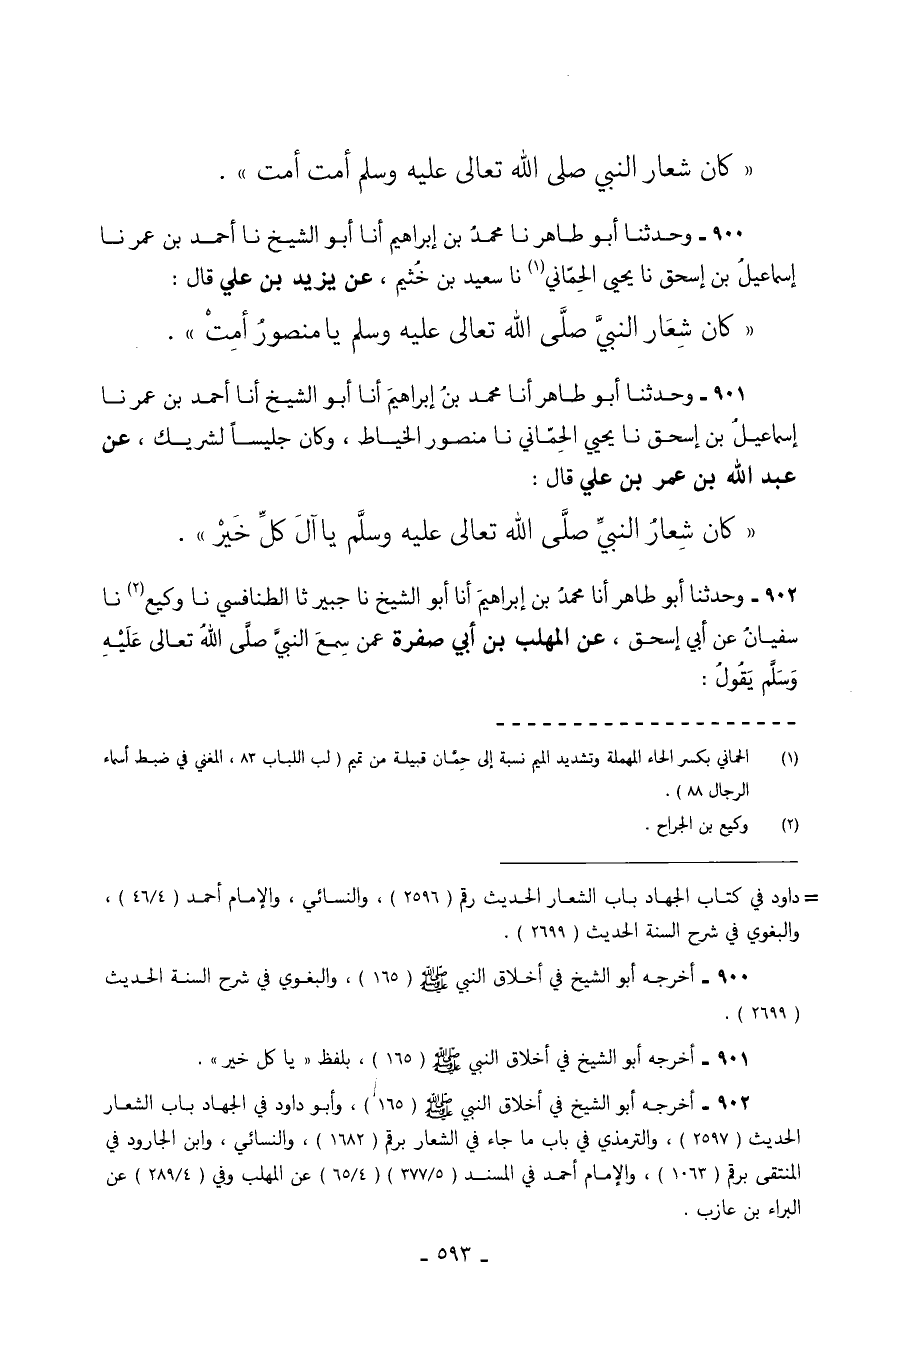 « كان شعار النبي صلى الله تعالى عليه وسلم أمت أمت » .
٩٠٠ ـ وحدثنا أبو طاهر نا محمدُ بن إبراهيم أنا أبو الشيخ نا أحمد بن عمر نا
إسماعيلُ بن إسحق نا يحيى الحِمّاني(١) نا سعيد بن خُثيم ، عن يزيد بن علي قال :
« كان شِعَار النبيَّ صلَّى الله تعالى عليه وسلم يا منصورُ أمِتْ » .
٩٠١ ـ وحدثنا أبو طاهر أنا محمد بنُ إبراهيمَ أنا أبو الشيخ أنا أحمد بن عمر نا
إسماعيلُ بن إسحق نا يحيي الحِمّاني نا منصور الخياط ، وكان جليساً لشريك ، عن
عبد الله بن عمر بن علي قال :
« كان شِعارُ النبيِّ صلَّى الله تعالى عليه وسلَّم يا آلَ كلِّ خَيرْ » .
٩٠٢ ـ وحدثنا أبو طاهر أنا محمدُ بن إبراهيمَ أنا أبو الشيخ نا جبير ثا الطنافسي نا وكيع(٢) نا
سفيانُ عن أبي إسحق ، عن المهلب بن أبي صفرة عمن سِمعَ النبيَّ صلَّى اللهُ تعالى عَلَيْهِ
وَسَلَّم يَقُولُ :
(١) الحماني بكسر الحاء المهملة وتشديد الميم نسبة إلى حِمَّان قبيلة من تميم ( لب اللباب ٨٣ ، المغني في ضبط أسماء
الرجال ٨٨ ) .
(٢) وكيع بن الجراح .
= داود في كتاب الجهاد باب الشعار الحديث رقم ( ٢٥٩٦ ) ، والنسائي ، والإمام أحمد ( ٤٦/٤ ) ،
والبغوي في شرح السنة الحديث ( ٢٦٩٩ ) .
٩٠٠ ـ أخرجه أبو الشيخ في أخلاق النبي ﷺ ( ١٦٥ ) ، والبغوي في شرح السنة الحديث
( ٢٦٩٩ ) .
٩٠١ ـ أخرجه أبو الشيخ في أخلاق النبي ﷺ ( ١٦٥ ) ، بلفظ « يا كل خير » .
٩٠٢ ـ أخرجه أبو الشيخ في أخلاق النبي ﷺ ( ١٦٥ ) ، وأبو داود في الجهاد باب الشعار
الحديث ( ٢٥٩٧ ) ، والترمذي في باب ما جاء في الشعار برقم ( ١٦٨٢ ) ، والنسائي ، وابن الجارود في
المنتقى برقم ( ١٠٦٣ ) ، والإمام أحمد في المسند ( ٣٧٧/٥ ) ( ٦٥/٤ ) عن المهلب وفي ( ٢٨٩/٤ ) عن
البراء بن عازب .
ـ ٥٩٣ ـ